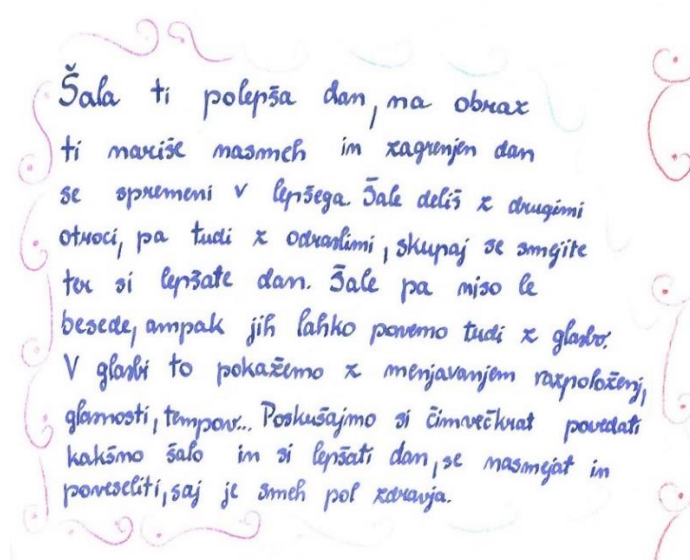 Šala ti polepša dan, na obraz
ti nariše nasmeh in zagrenjen dan
se spremeni v lepšega. Šale deliš z drugimi
otroci, pa tudi z odraslimi, skupaj se smejite
ter si lepšate dan. Šale pa niso le
besede, ampak jih lahko povemo tudi z glasbo.
V glasbi to pokažemo z menjavanjem razpoloženj,
glasnosti, tempov... Poskušajmo si čimvečkrat povedati
kakšno šalo in si lepšati dan, se nasmejat in
poveseliti, saj je smeh pol zdravja.